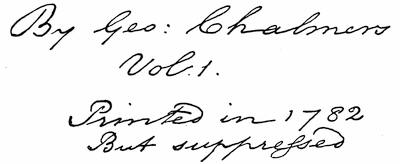 By Geo: Chalmers
Vol: 1.
Printed in 1782
But suppressed